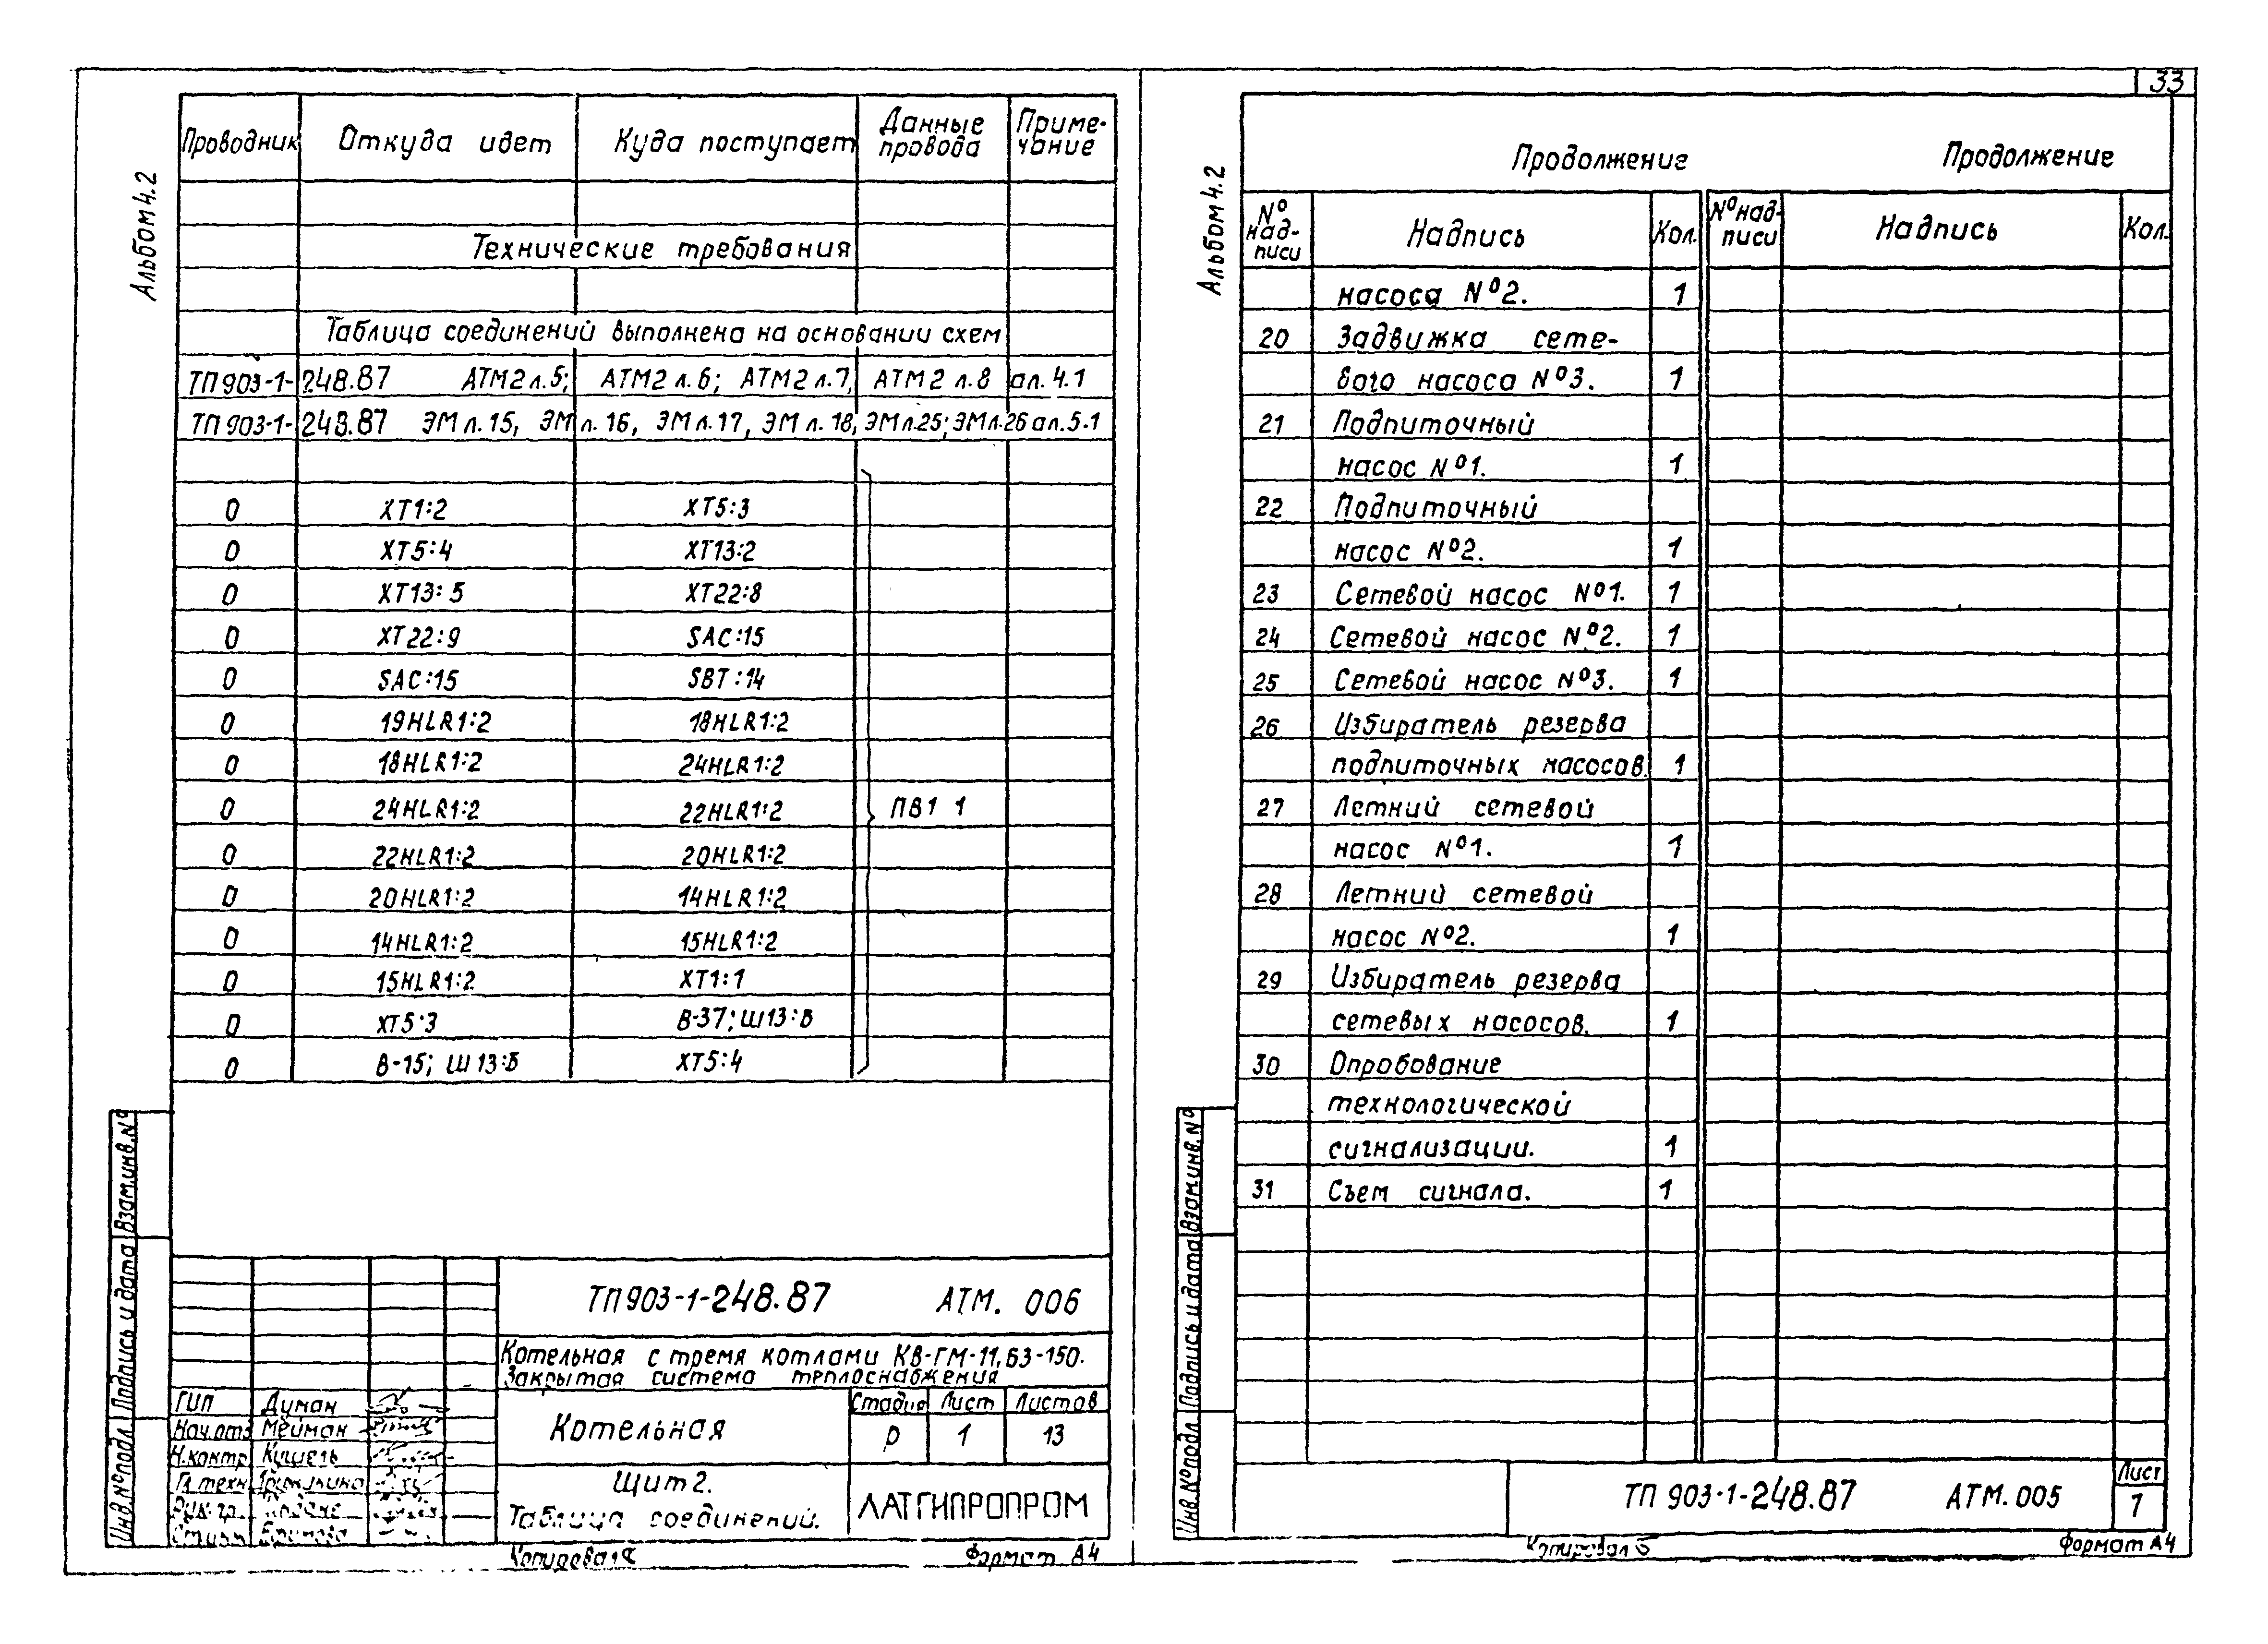 33
Альбом 4.2
Проводник Откуда идет Куда поступает Данные провода Приме-чание
Технические требования
Таблица соединений выполнена на основании схем
ТП 903-1-248.87 АТМ2 л.5; АТМ2 л.6; АТМ2 л.7, АТМ2 л.8 ал.4.1
ТП 903-1-248.87 ЭМ л.15, ЭМ л.16, ЭМ л.17, ЭМ л.18, ЭМ л.25; ЭМ л.26 ал.5.1
0 XT1:2 XT5:3
0 XT5:4 XT13:2
0 XT13:5 XT22:8
0 XT22:9 SAC:15
0 SAC:15 SBT:14
0 19HLR1:2 18HLR1:2
0 18HLR1:2 24HLR1:2
0 24HLR1:2 22HLR1:2 ПВ1 1
0 22HLR1:2 20HLR1:2
0 20HLR1:2 14HLR1:2
0 14HLR1:2 15HLR1:2
0 15HLR1:2 XT1:1
0 XT5:3 В-37; Ш13:Б
0 В-15; Ш13:Б XT5:4
Взам.инв.№
Подпись и дата
Инв.№подл
ТП 903-1-248.87 АТМ. 006
Котельная с тремя котлами КВ-ГМ-11,63-150.
Закрытая система теплоснабжения
ГИП Диман
Нач.отд Мейман
Н.контр Кишель
Гл техн
Рук.гр.
Котельная
Стадия Лист Листов
Р 1 13
Щит 2.
Таблица соединений.
ЛАТГИПРОПРОМ
Копировал
Формат А4
Альбом 4.2
Продолжение
Продолжение
№ над-писи Надпись Кол. № над-писи Надпись Кол.
насоса №2. 1
20 Задвижка сете-
вого насоса №3. 1
21 Подпиточный
насос №1. 1
22 Подпиточный
насос №2. 1
23 Сетевой насос №1. 1
24 Сетевой насос №2. 1
25 Сетевой насос №3. 1
26 Избиратель резерва
подпиточных насосов. 1
27 Летний сетевой
насос №1. 1
28 Летний сетевой
насос №2. 1
29 Избиратель резерва
сетевых насосов. 1
30 Опробование
технологической
сигнализации. 1
31 Съем сигнала. 1
Взам.инв.№
Подпись и дата
Инв.№подл
ТП 903-1-248.87 АТМ.005
Лист
7
Копировал
Формат А4